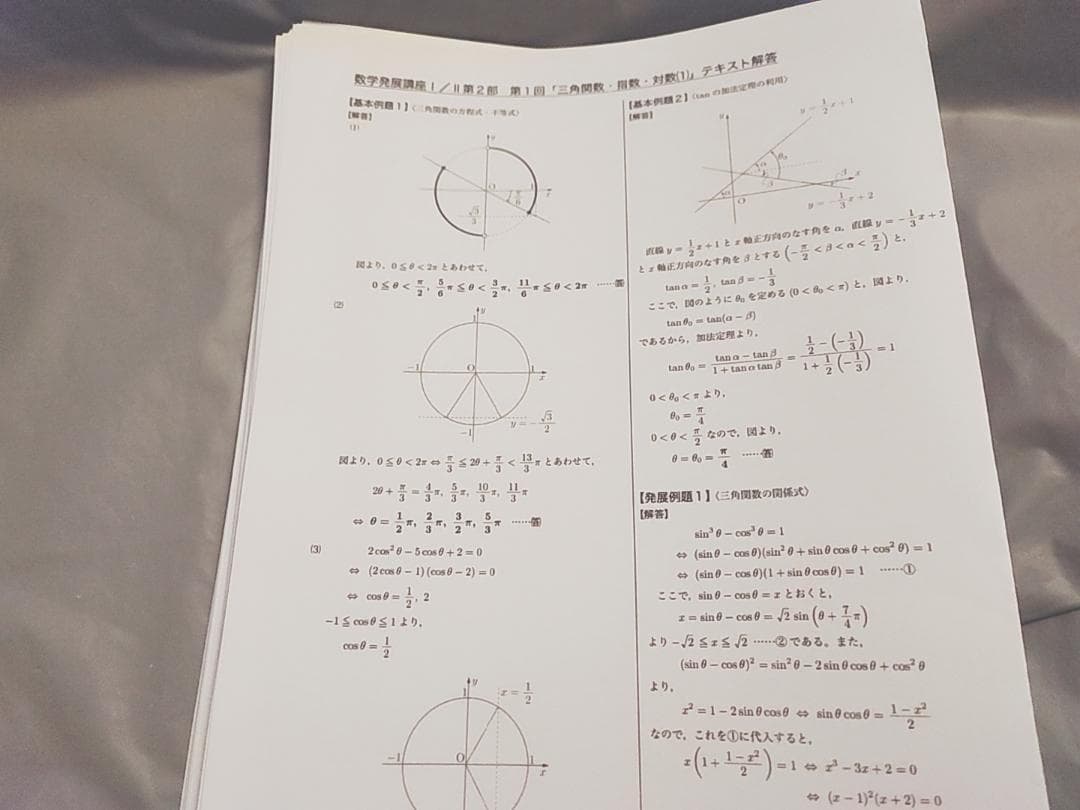 数学発展講座Ⅰ／Ⅱ第2部 第1回「三角関数・指数・対数(1)」テキスト解答
【基本例題1】〈三角関数の方程式・不等式〉
【解答】
(1)
y
O
1
x
π/6
√3/3
図より，0≦θ<2πとあわせて，
0≦θ<π/2, 5/6π≦θ<3/2π, 11/6π≦θ<2π ……答
(2)
y
1
-1
O
1
x
-1
y=-√3/2
図より，0≦θ<2π⇔π/3≦2θ+π/3<13/3πとあわせて，
2θ+π/3=4/3π, 5/3π, 10/3π, 11/3π
⇔ θ=1/2π, 2/3π, 3/2π, 5/3π ……答
(3)
2cos²θ-5cosθ+2=0
⇔ (2cosθ-1)(cosθ-2)=0
⇔ cosθ=1/2, 2
-1≦cosθ≦1より，
cosθ=1/2
y
x=1/2
1
-1
O
1
x
【基本例題2】〈tanの加法定理の利用〉
【解答】
y=1/2x+1
y
θ₀
α
β
β
x
α
O
y=-1/3x+2
直線y=1/2x+1とx軸正方向のなす角をα，直線y=-1/3x+2
とx軸正方向のなす角をβとする(-π/2<β<α<π/2)と，
tanα=1/2, tanβ=-1/3
ここで，図のようにθ₀を定める(0<θ₀<π)と，図より，
tanθ₀=tan(α-β)
であるから，加法定理より，
tanθ₀=(tanα-tanβ)/(1+tanαtanβ)=(1/2-(-1/3))/(1+1/2(-1/3))=1
0<θ₀<πより，
θ₀=π/4
0<θ<π/2なので，図より，
θ=θ₀=π/4 ……答
【発展例題1】〈三角関数の関係式〉
【解答】
sin³θ-cos³θ=1
⇔ (sinθ-cosθ)(sin²θ+sinθcosθ+cos²θ)=1
⇔ (sinθ-cosθ)(1+sinθcosθ)=1 ……①
ここで，sinθ-cosθ=xとおくと，
x=sinθ-cosθ=√2sin(θ+7/4π)
より-√2≦x≦√2……②である。また，
(sinθ-cosθ)²=sin²θ-2sinθcosθ+cos²θ
より，
x²=1-2sinθcosθ ⇔ sinθcosθ=(1-x²)/2
なので，これを①に代入すると，
x(1+(1-x²)/2)=1 ⇔ x³-3x+2=0
⇔ (x-1)²(x+2)=0